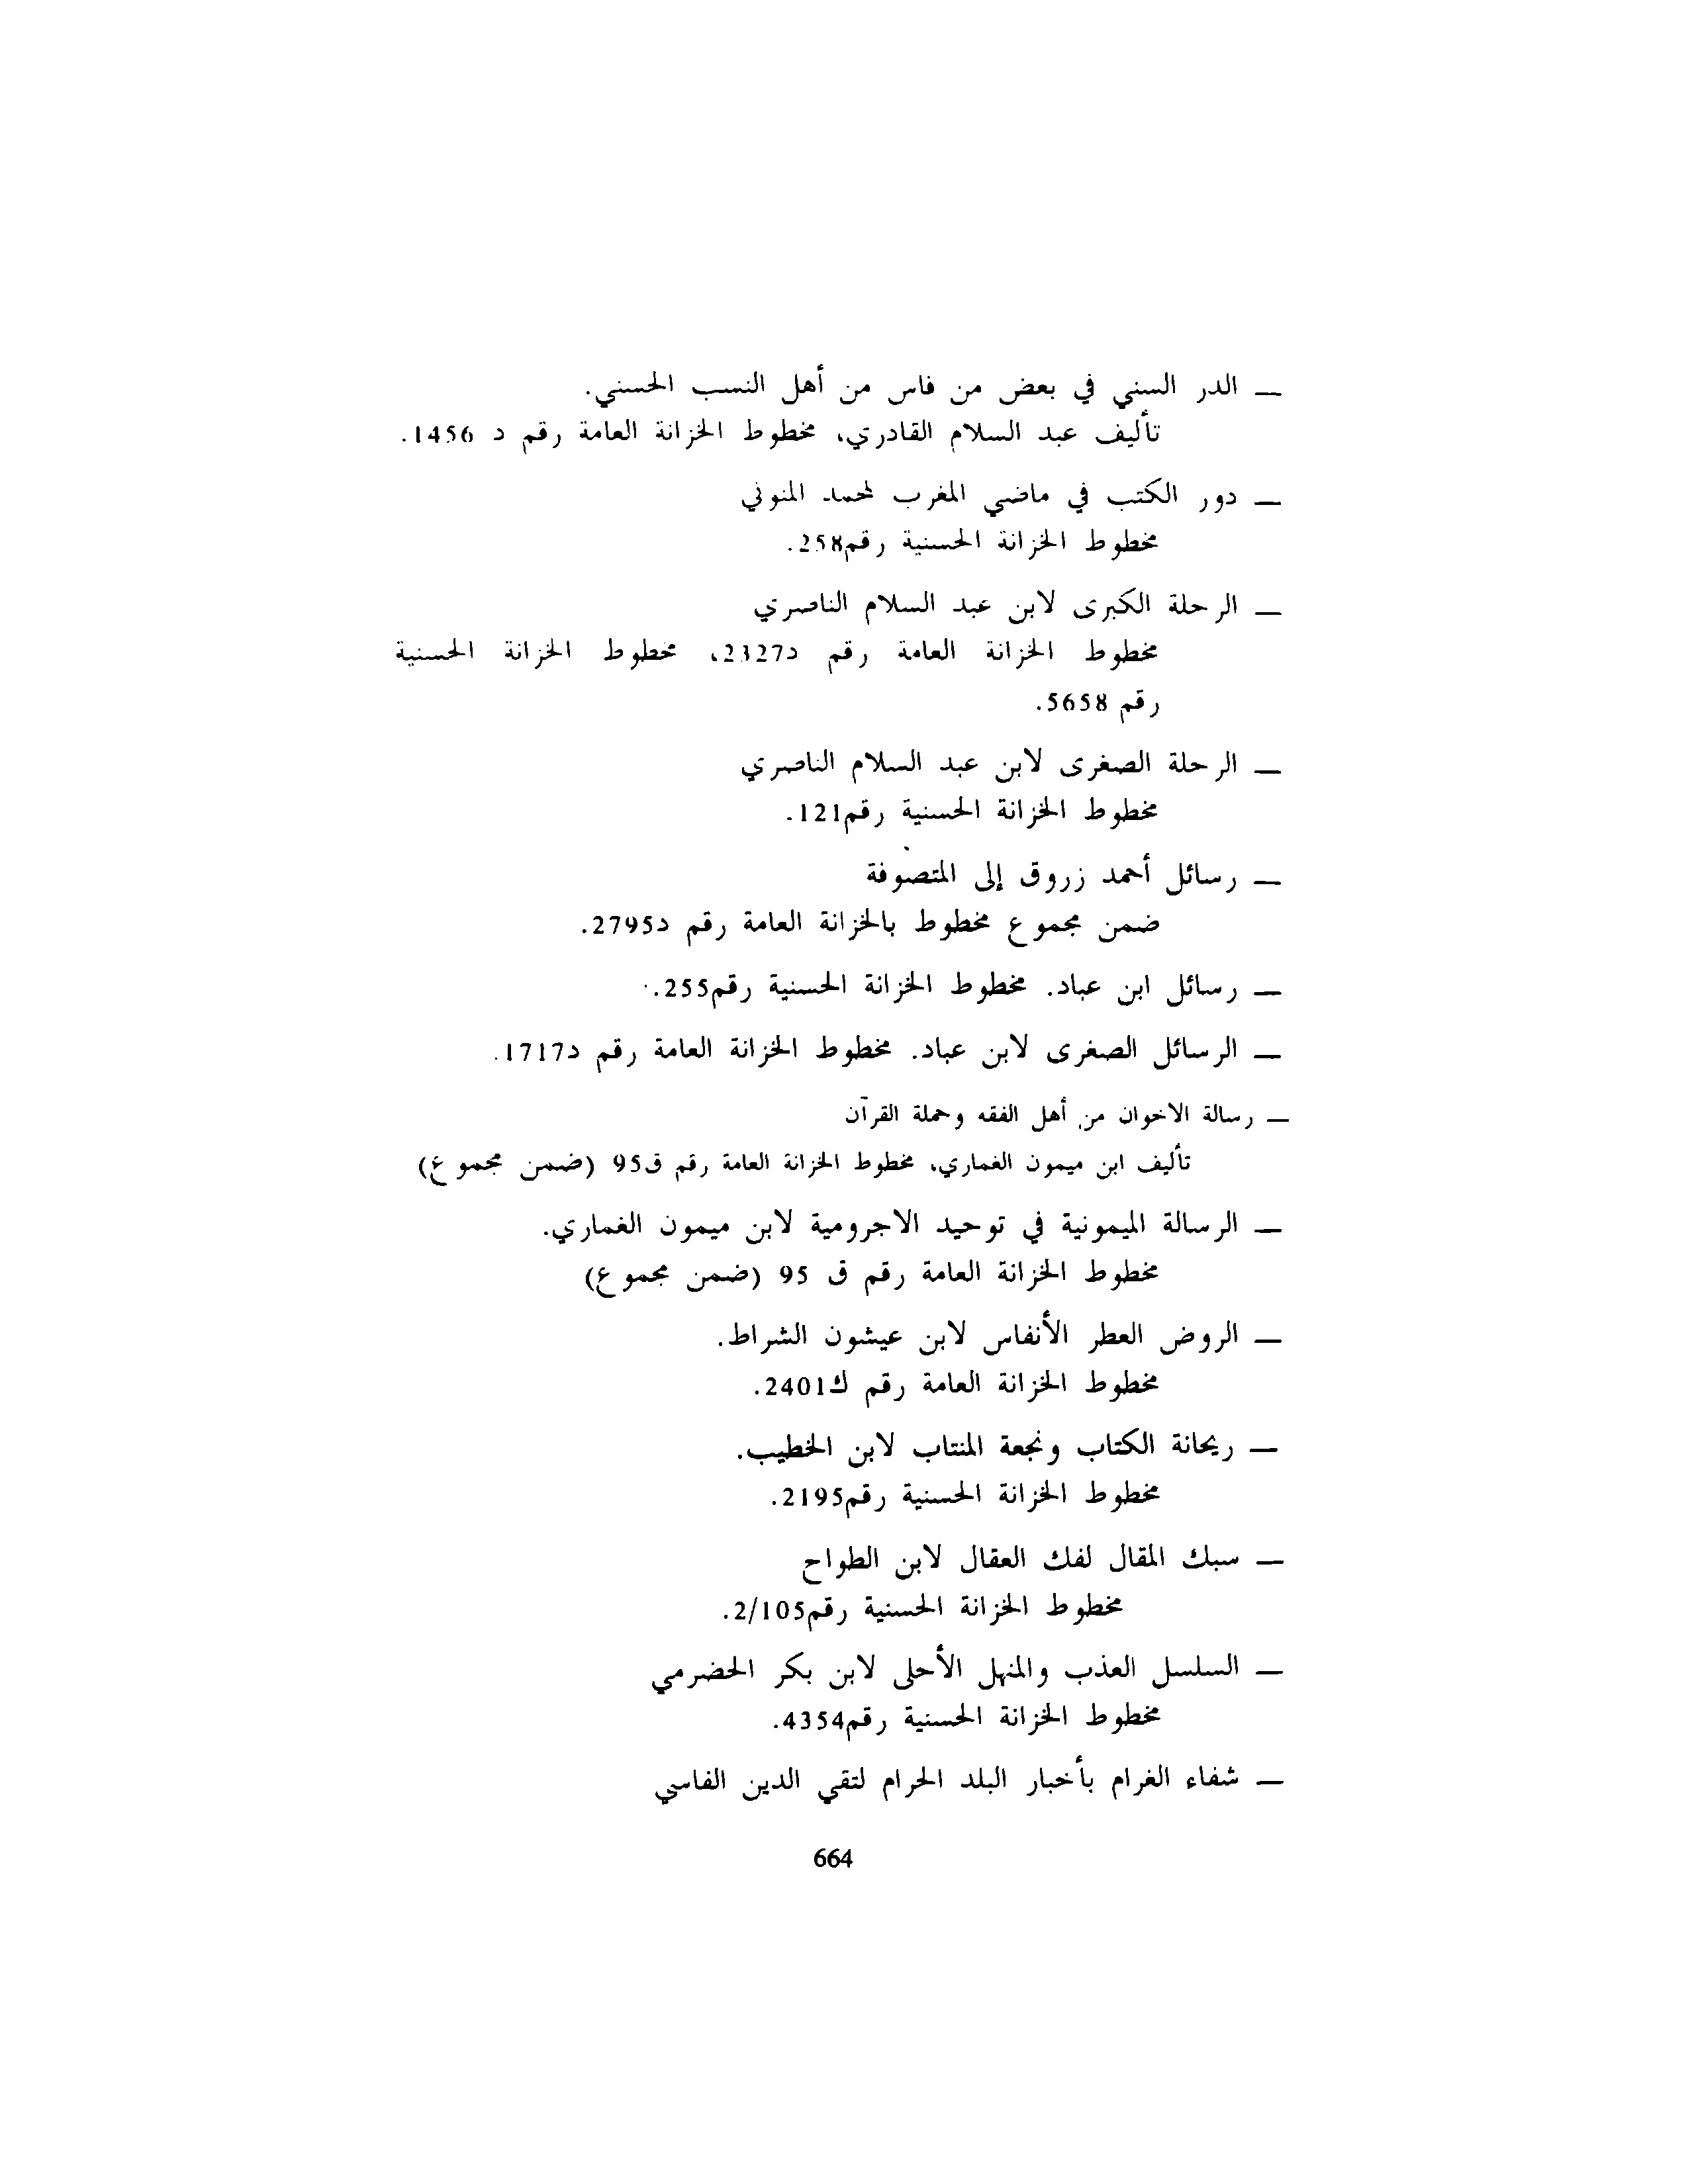 — الدر السني في بعض من فاس من أهل النسب الحسني.
تأليف عبد السلام القادري، مخطوط الخزانة العامة رقم د 1456.
— دور الكتب في ماضي المغرب لمحمد المنوني
مخطوط الخزانة الحسنية رقم258.
— الرحلة الكبرى لابن عبد السلام الناصري
مخطوط الخزانة العامة رقم د2327، مخطوط الخزانة الحسنية
رقم 5658.
— الرحلة الصغرى لابن عبد السلام الناصري
مخطوط الخزانة الحسنية رقم121.
— رسائل أحمد زروق إلى المتصوفة
ضمن مجموع مخطوط بالخزانة العامة رقم د2795.
— رسائل ابن عباد. مخطوط الخزانة الحسنية رقم255.
— الرسائل الصغرى لابن عباد. مخطوط الخزانة العامة رقم د1717.
— رسالة الاخوان من أهل الفقه وحملة القرآن
تأليف ابن ميمون الغماري، مخطوط الخزانة العامة رقم ق95 (ضمن مجموع)
— الرسالة الميمونية في توحيد الاجرومية لابن ميمون الغماري.
مخطوط الخزانة العامة رقم ق 95 (ضمن مجموع)
— الروض العطر الأنفاس لابن عيشون الشراط.
مخطوط الخزانة العامة رقم ك2401.
— ريحانة الكتاب ونجعة المنتاب لابن الخطيب.
مخطوط الخزانة الحسنية رقم2195.
— سبك المقال لفك العقال لابن الطواح
مخطوط الخزانة الحسنية رقم2/105.
— السلسل العذب والمنهل الأحلى لابن بكر الحضرمي
مخطوط الخزانة الحسنية رقم4354.
— شفاء الغرام بأخبار البلد الحرام لتقي الدين الفاسي
664